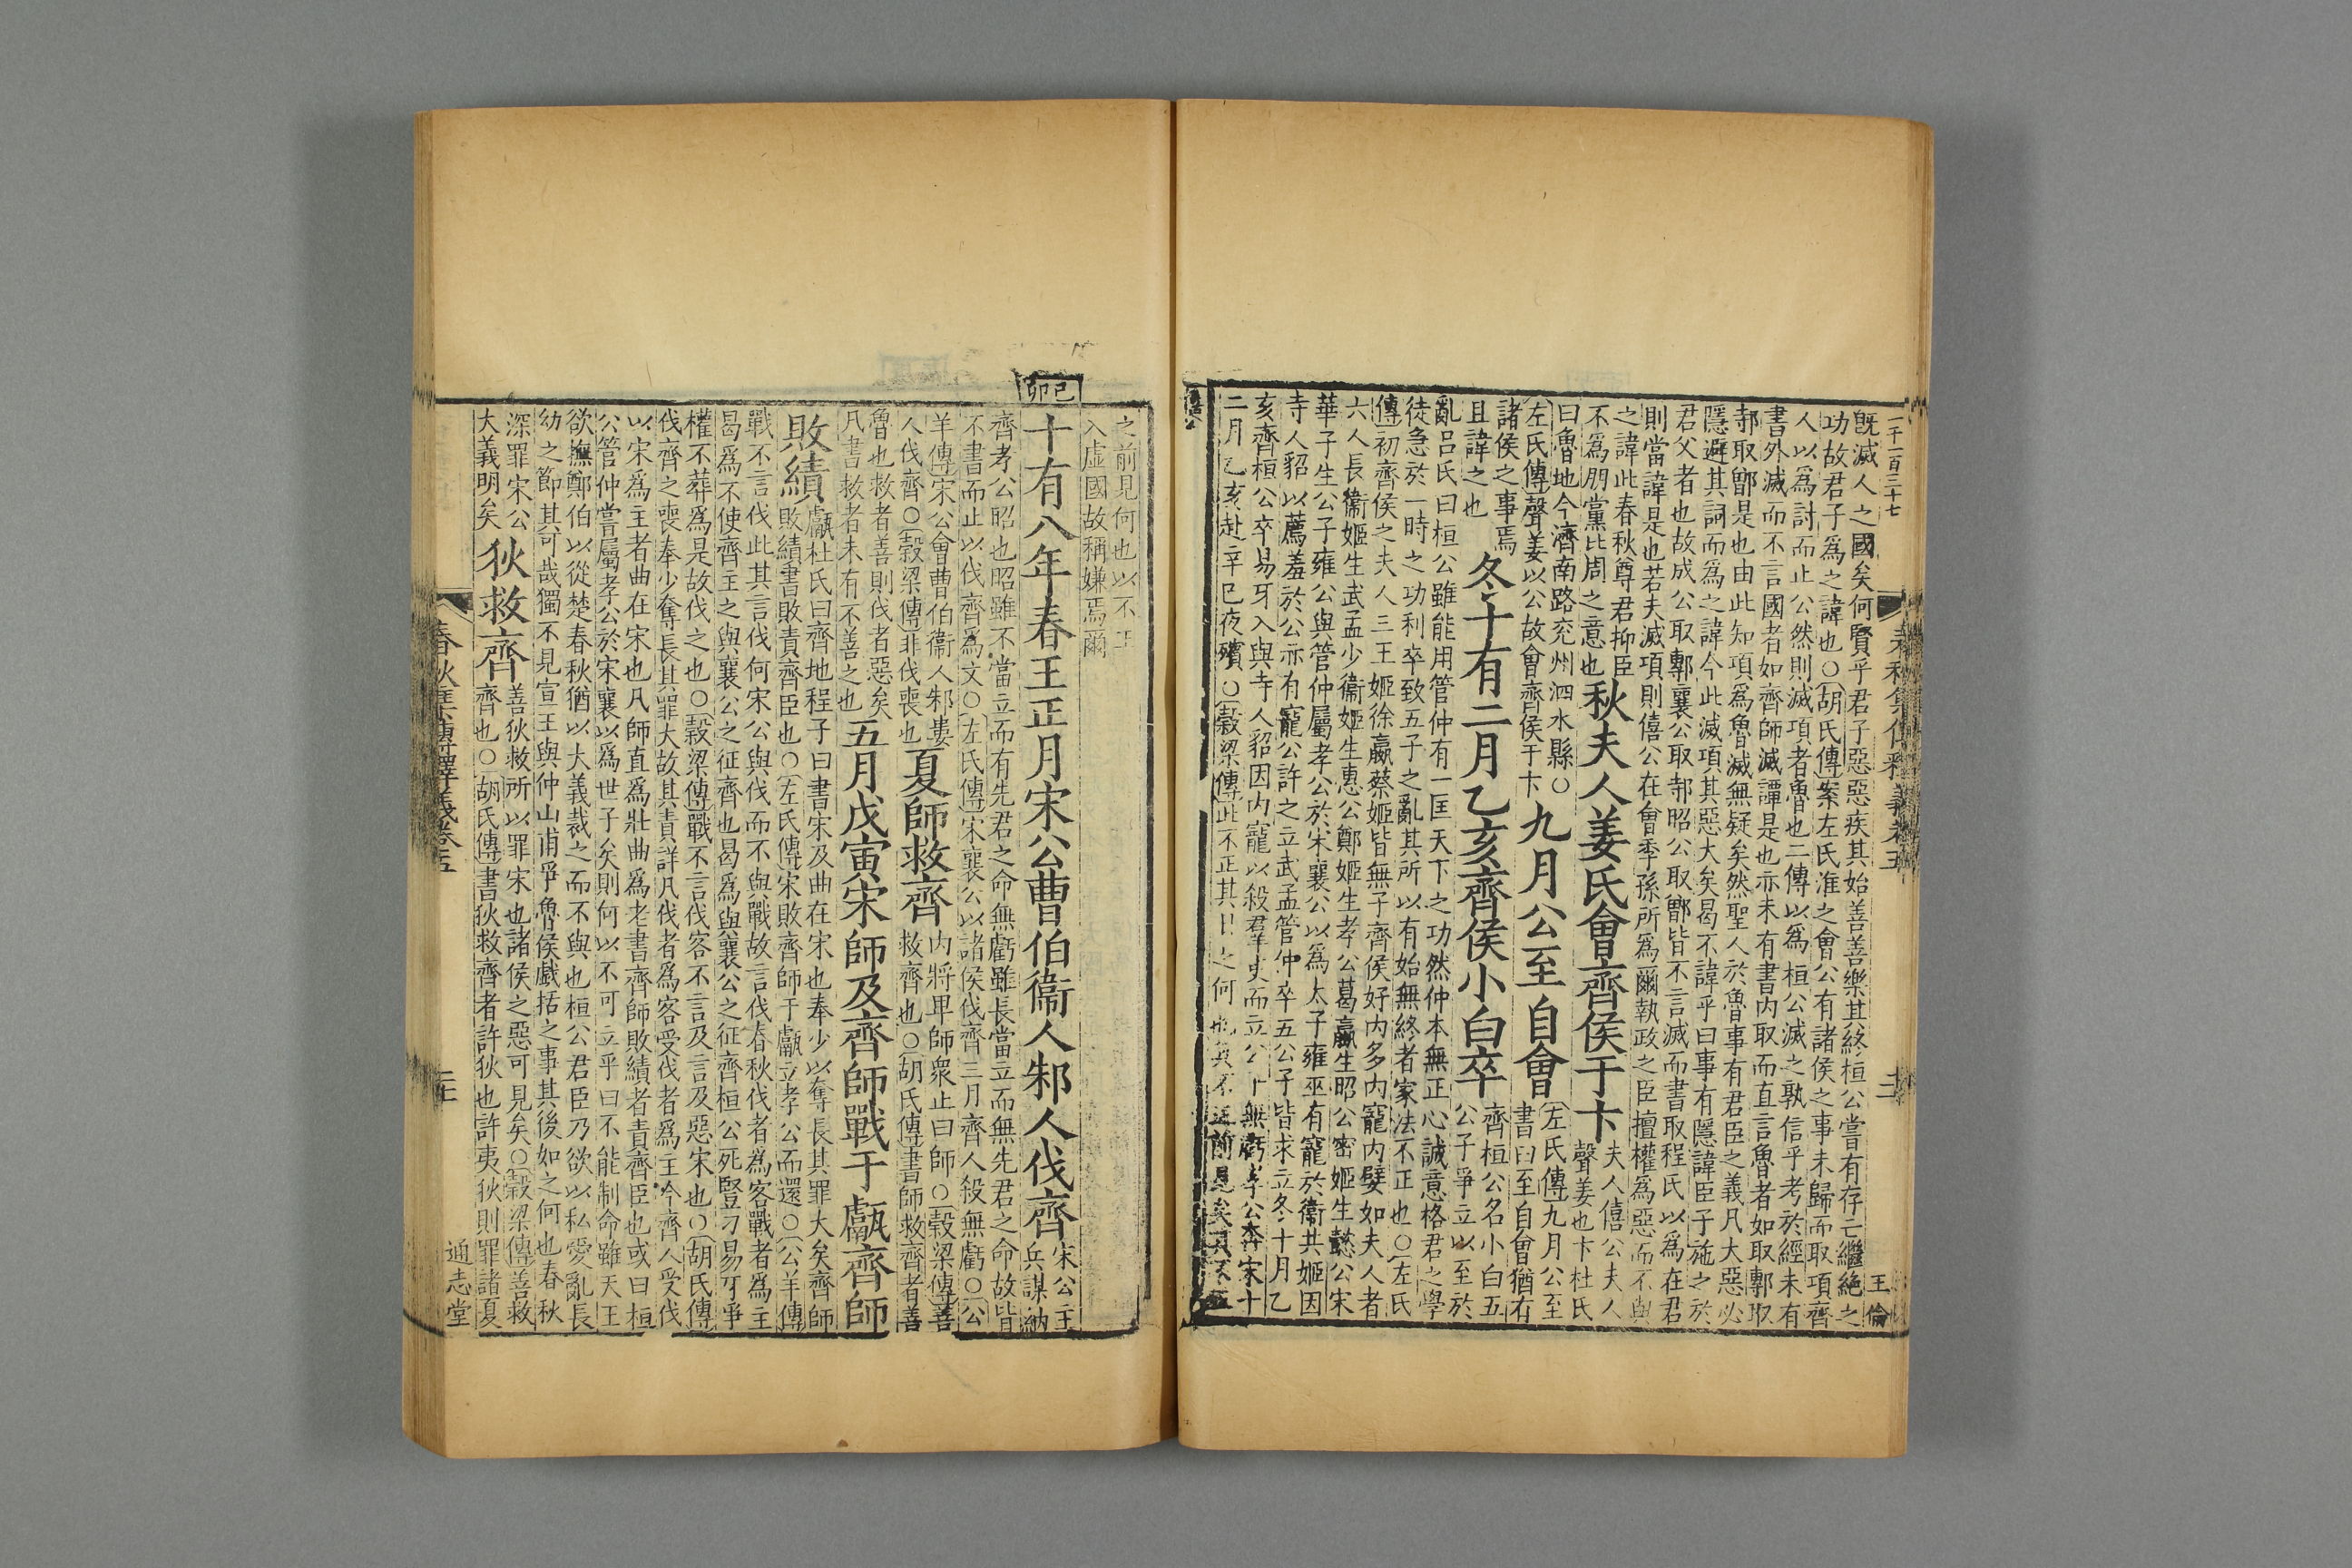 一千一百三十七
王倫
既滅人之國矣何賢乎君子惡惡疾其始善善樂其終桓公嘗有存亡繼絶之
功故君子為之諱也○胡氏傳案左氏淮之會公有諸侯之事未歸而取項齊
人以為討而止公然則滅項者魯也二傳以為桓公滅之孰信乎考於經未有
書外滅而不言國者如齊師滅譚是也亦未有書内取而直言魯者如取鄟取
邿取鄫是也由此知項為魯滅無疑矣然聖人於魯事有君臣之義凡大惡必
隱避其詞而為之諱今此滅項其惡大矣曷不諱乎曰事有隱諱臣子施之於
君父者也故成公取鄟襄公取邿昭公取鄫皆不言滅而書取程氏以為在君
則當諱是也若夫滅項則僖公在會季孫所為爾執政之臣擅權為惡而不與
之諱此春秋尊君抑臣
不為朋黨比周之意也秋夫人姜氏會齊侯于卞夫人僖公夫人
聲姜也卞杜氏
曰魯地今濟南路兖州泗水縣○
左氏傳聲姜以公故會齊侯于卞九月公至自會左氏傳九月公至
書曰至自會猶有
諸侯之事焉
且諱之也冬十有二月乙亥齊侯小白卒齊桓公名小白五
公子爭立以至於
亂吕氏曰桓公雖能用管仲有一匡天下之功然仲本無正心誠意格君之學
徒急於一時之功利卒致五子之亂其所以有始無終者家法不正也○左氏
傳初齊侯之夫人三王姬徐嬴蔡姬皆無子齊侯好内多内寵内嬖如夫人者
六人長衞姬生武孟少衞姬生惠公鄭姬生孝公葛嬴生昭公密姬生懿公宋
華子生公子雍公與管仲屬孝公於宋襄公以為太子雍巫有寵於衞共姬因
寺人貂以薦羞於公亦有寵公許之立武孟管仲卒五公子皆求立冬十月乙
亥齊桓公卒易牙入與寺人貂因内寵以殺羣吏而立公子無虧孝公奔宋十
二月乙亥赴辛巳夜殯○穀梁傳此不正其日之何也其不正前見矣其不正
之前見何也以不正
入虛國故稱嫌焉爾
己卯
十有八年春王正月宋公曹伯衞人邾人伐齊宋公主
兵謀納
齊孝公昭也昭雖不當立而有先君之命無虧雖長當立而無先君之命故皆
不書而止以伐齊為文○左氏傳宋襄公以諸侯伐齊三月齊人殺無虧○公
羊傳宋公會曹伯衞人邾婁
人伐齊○穀梁傳非伐喪也夏師救齊内將卑師衆止曰師○穀梁傳善
救齊也○胡氏傳書師救齊者善
魯也救者善則伐者惡矣
凡書救者未有不善之也五月戊寅宋師及齊師戰于甗齊師
敗績甗杜氏曰齊地程子曰書宋及曲在宋也奉少以奪長其罪大矣齊師
敗績書敗責齊臣也○左氏傳宋敗齊師于甗立孝公而還○公羊傳
戰不言伐此其言伐何宋公與伐而不與戰故言伐春秋伐者為客戰者為主
曷為不使齊主之與襄公之征齊也曷為與襄公之征齊桓公死豎刁易牙爭
權不葬為是故伐之也○穀梁傳戰不言伐客不言及言及惡宋也○胡氏傳
伐齊之喪奉少奪長其罪大故其責詳凡伐者為客受伐者為主今齊人受伐
以宋為主者曲在宋也凡師直為壯曲為老書齊師敗績者責齊臣也或曰桓
公管仲嘗屬孝公於宋襄以為世子矣則何以不可立乎曰不能制命雖天王
欲撫鄭伯以從楚春秋猶以大義裁之而不與也桓公君臣乃欲以私愛亂長
幼之節其可哉獨不見宣王與仲山甫爭魯侯戲括之事其後如之何也春秋
深罪宋公
大義明矣狄救齊善狄救所以罪宋也諸侯之惡可見矣○穀梁傳善救
齊也○胡氏傳書狄救齊者許狄也許夷狄則罪諸夏
通志堂